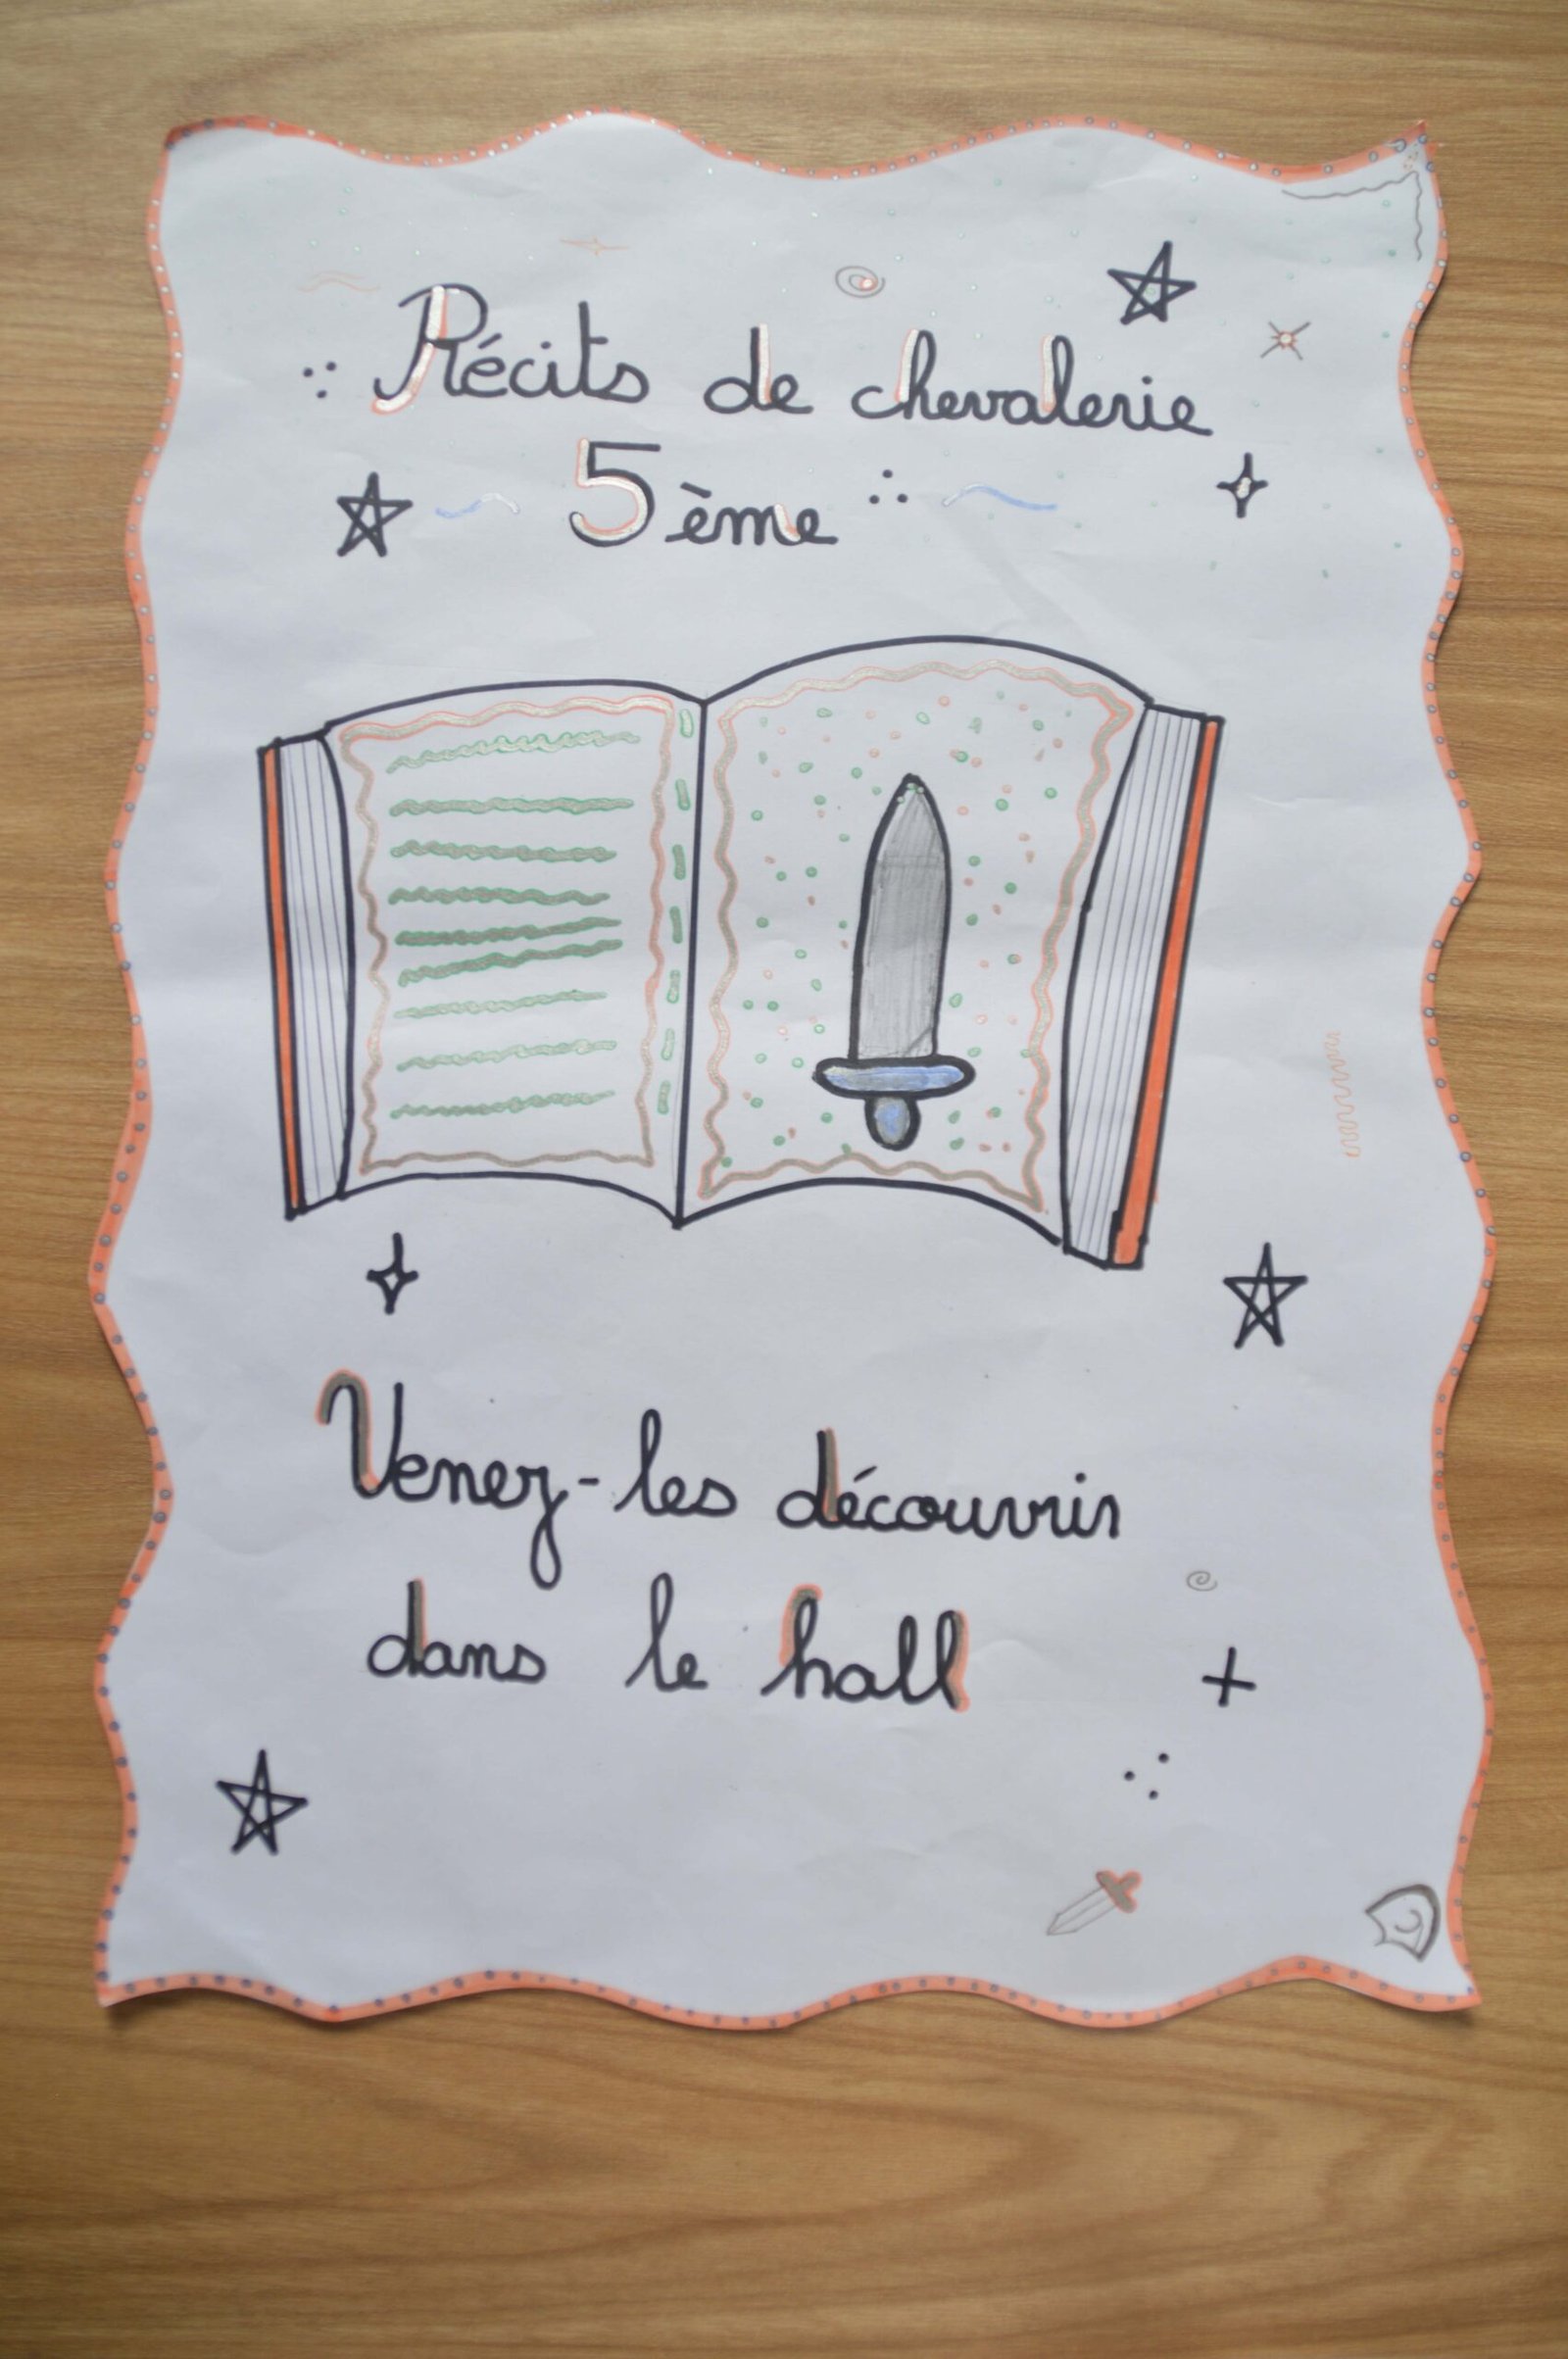 Récits de chevalerie
5ème
Venez-les découvrir
dans le hall